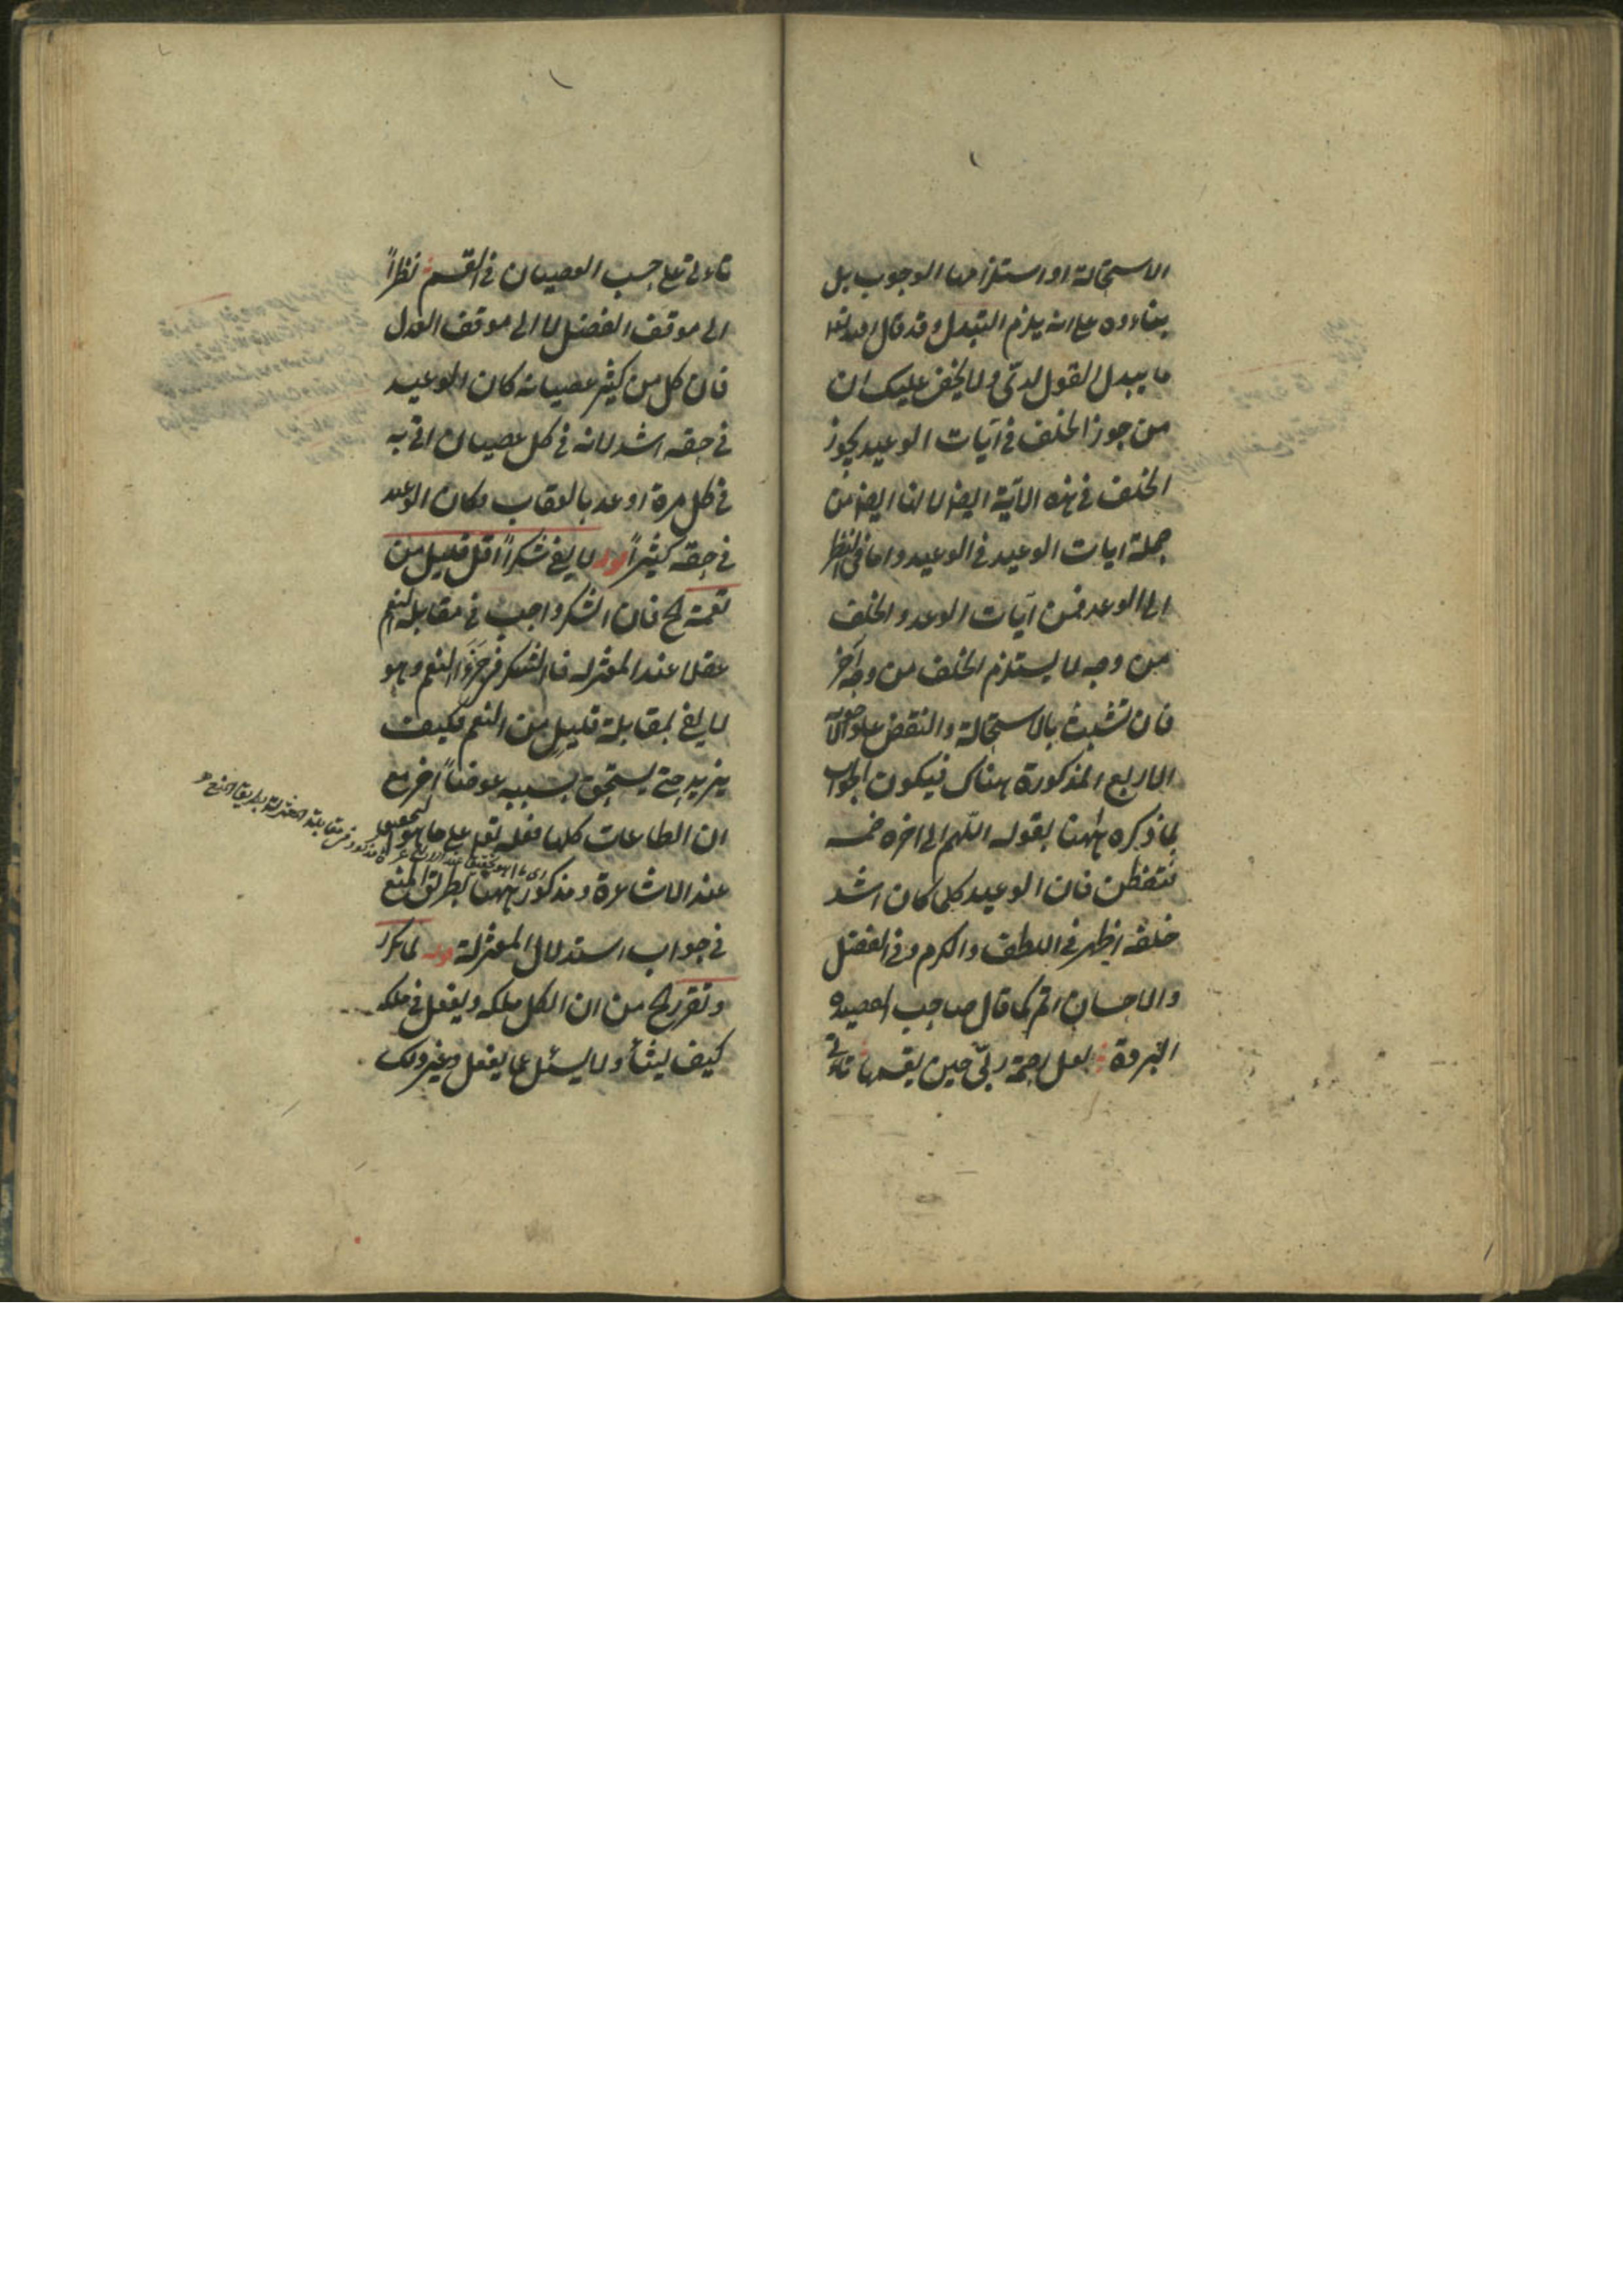 الاستحالة او استلزامها الوجوب بل
بناءوه على انه يلزم التبدل وقد قال الله تعالى
ما يبدل القول لدىّ ولا يخفى عليك ان
من جوز الخلف فى آيات الوعيد يجوز
الخلف فى هذه الآية ايضا لانها ايضا من
جملة ايات الوعيد فى الوعيد واما فى النظر
الى الوعد فمن آيات الوعد والخلف
من وجه لا يستلزم الخلف من وجه آخر
فان تشبث بالاستحالة والنقض على الوجوه
الاربع المذكورة هناك فيكون الجواب
بما ذكره ههنا بقوله اللهم الى اخره
فتفطن فان الوعيد كلما كان اشد
خلفه اظهر فى اللطف والكرم وفى الفضل
والاحسان اتم كما قال صاحب القصيدة
البردة لعل رحمة ربّى حين يقسمها تاءتى
تاءتى على حسب العصيان فى القسم نظراً
الى موقف الفضل لا الى موقف العدل
فان كل من كثر عصيانه كان الوعيد
فى حقه اشد لانه فى كل عصيان اتى به
فى كل مرة اوعد بالعقاب فكان الوعيد
فى حقه كثيراً قوله لا يفى شكراً اقل قليل من
نعمه الخ فان الشكر واجب فى مقابلة النعم
عقلا عند المعتزله فالشكر النعم وهو
لا يفى بمقابلة قليل من النعم فكيف
يزيد حتى يستحق بسببه عوضاً آخر مع
ان الطاعات كلها فعله تعالى على ما هو التحقيق
عند الاشاعرة ومذكور ههنا بطريق المنع
فى جواب استدلال المعتزلة قوله لما تكرر
وتقرر الخ من ان الكل ملكه ويفعل فى ملكه
كيف يشأ ولا يسئل عما يفعل وغير ذلك